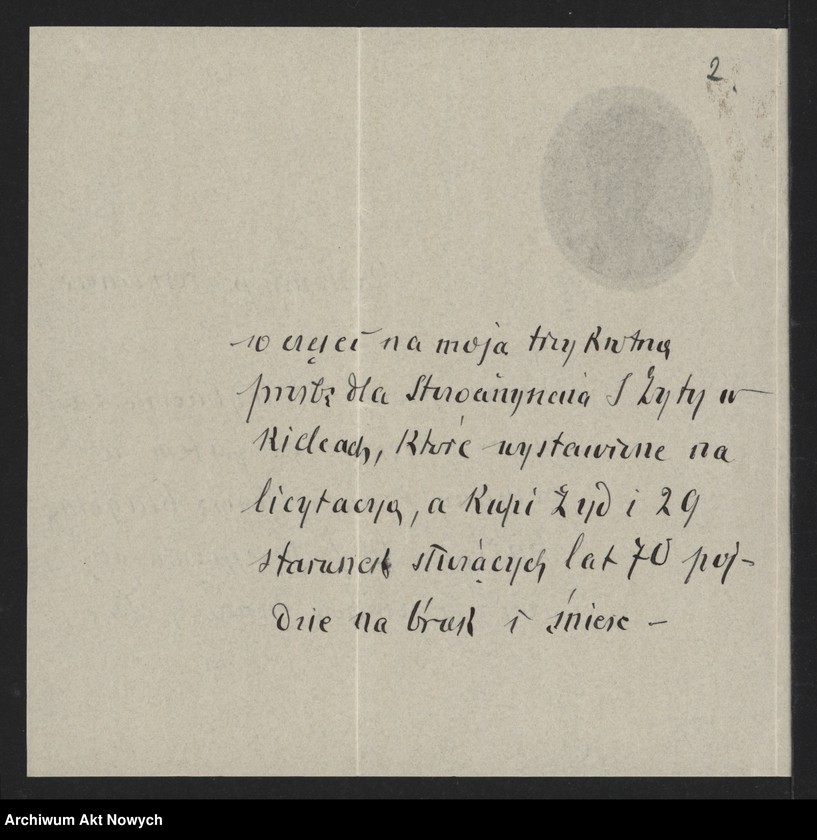 2
w części na moją trzykrotną
prośbę dla Stowarzyszenia Ś Zyty w
Kielcach, które wystawione na
licytacyą, a kupi Żyd i 29
staruszek służących lat 70 pój-
dzie na bruk i śmierć –
Archiwum Akt Nowych